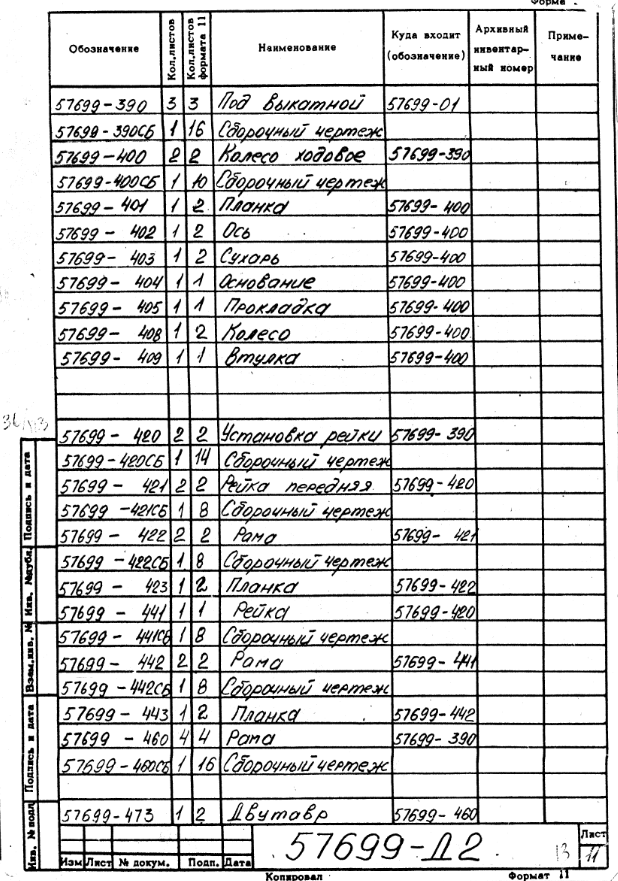 Форма
Обозначение Кол.листов Кол.листов формата 11 Наименование Куда входит (обозначение) Архивный инвентар-ный номер Приме-чание
57699-390 3 3 Под выкатной 57699-01
57699-390СБ 1 16 Сборочный чертеж
57699-400 2 2 Колесо ходовое 57699-390
57699-400СБ 1 10 Сборочный чертеж
57699-401 1 2 Планка 57699-400
57699-402 1 2 Ось 57699-400
57699-403 1 2 Сухарь 57699-400
57699-404 1 1 Основание 57699-400
57699-405 1 1 Прокладка 57699-400
57699-408 1 2 Колесо 57699-400
57699-409 1 1 Втулка 57699-400
57699-420 2 2 Установка рейки 57699-390
57699-420СБ 1 14 Сборочный чертеж
57699-421 2 2 Рейка передняя 57699-420
57699-421СБ 1 8 Сборочный чертеж
57699-422 2 2 Рама 57699-421
57699-422СБ 1 8 Сборочный чертеж
57699-423 1 2 Планка 57699-422
57699-441 1 1 Рейка 57699-420
57699-441СБ 1 8 Сборочный чертеж
57699-442 2 2 Рама 57699-441
57699-442СБ 1 8 Сборочный чертеж
57699-443 1 2 Планка 57699-442
57699-460 4 4 Рама 57699-390
57699-460СБ 1 16 Сборочный чертеж
57699-473 1 2 Двутавр 57699-460
Подпись и дата
Инв. №дубл.
Взам.инв. №
Подпись и дата
Инв. №подл
57699-Д2
13
Лист
11
Изм Лист № докум. Подп. Дата
Копировал Формат 11